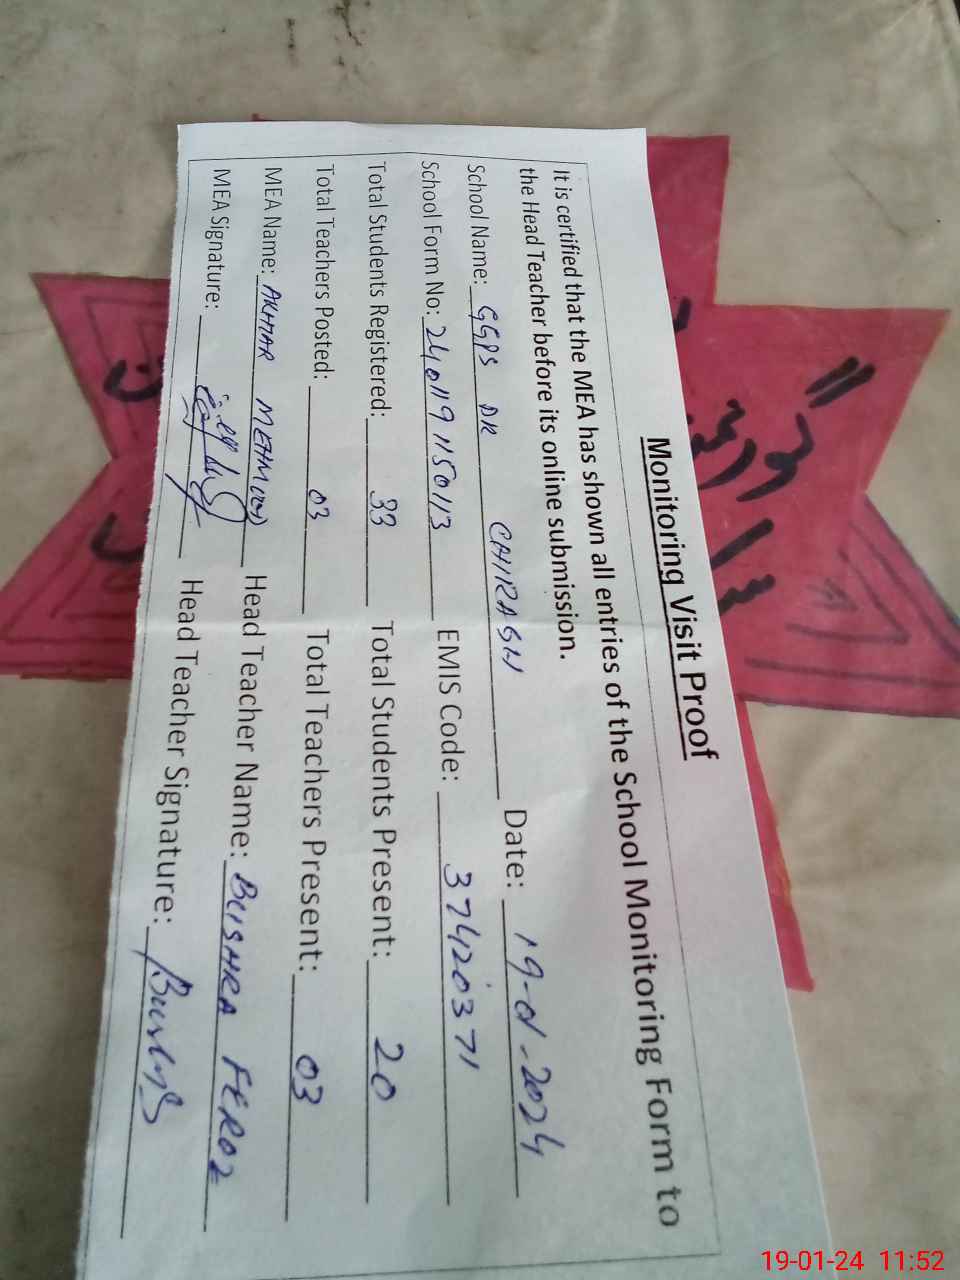 Monitoring Visit Proof
It is certified that the MEA has shown all entries of the School Monitoring Form to
the Head Teacher before its online submission.
School Name: GGPS DK CHIRAGH Date: 19-01-2024
School Form No: 2401191150113 EMIS Code: 37420371
Total Students Registered: 33 Total Students Present: 20
Total Teachers Posted: 03 Total Teachers Present: 03
MEA Name: AKHTAR MEHMOOD Head Teacher Name: BUSHRA FEROZ
MEA Signature: Head Teacher Signature: Bushra
19-01-24 11:52